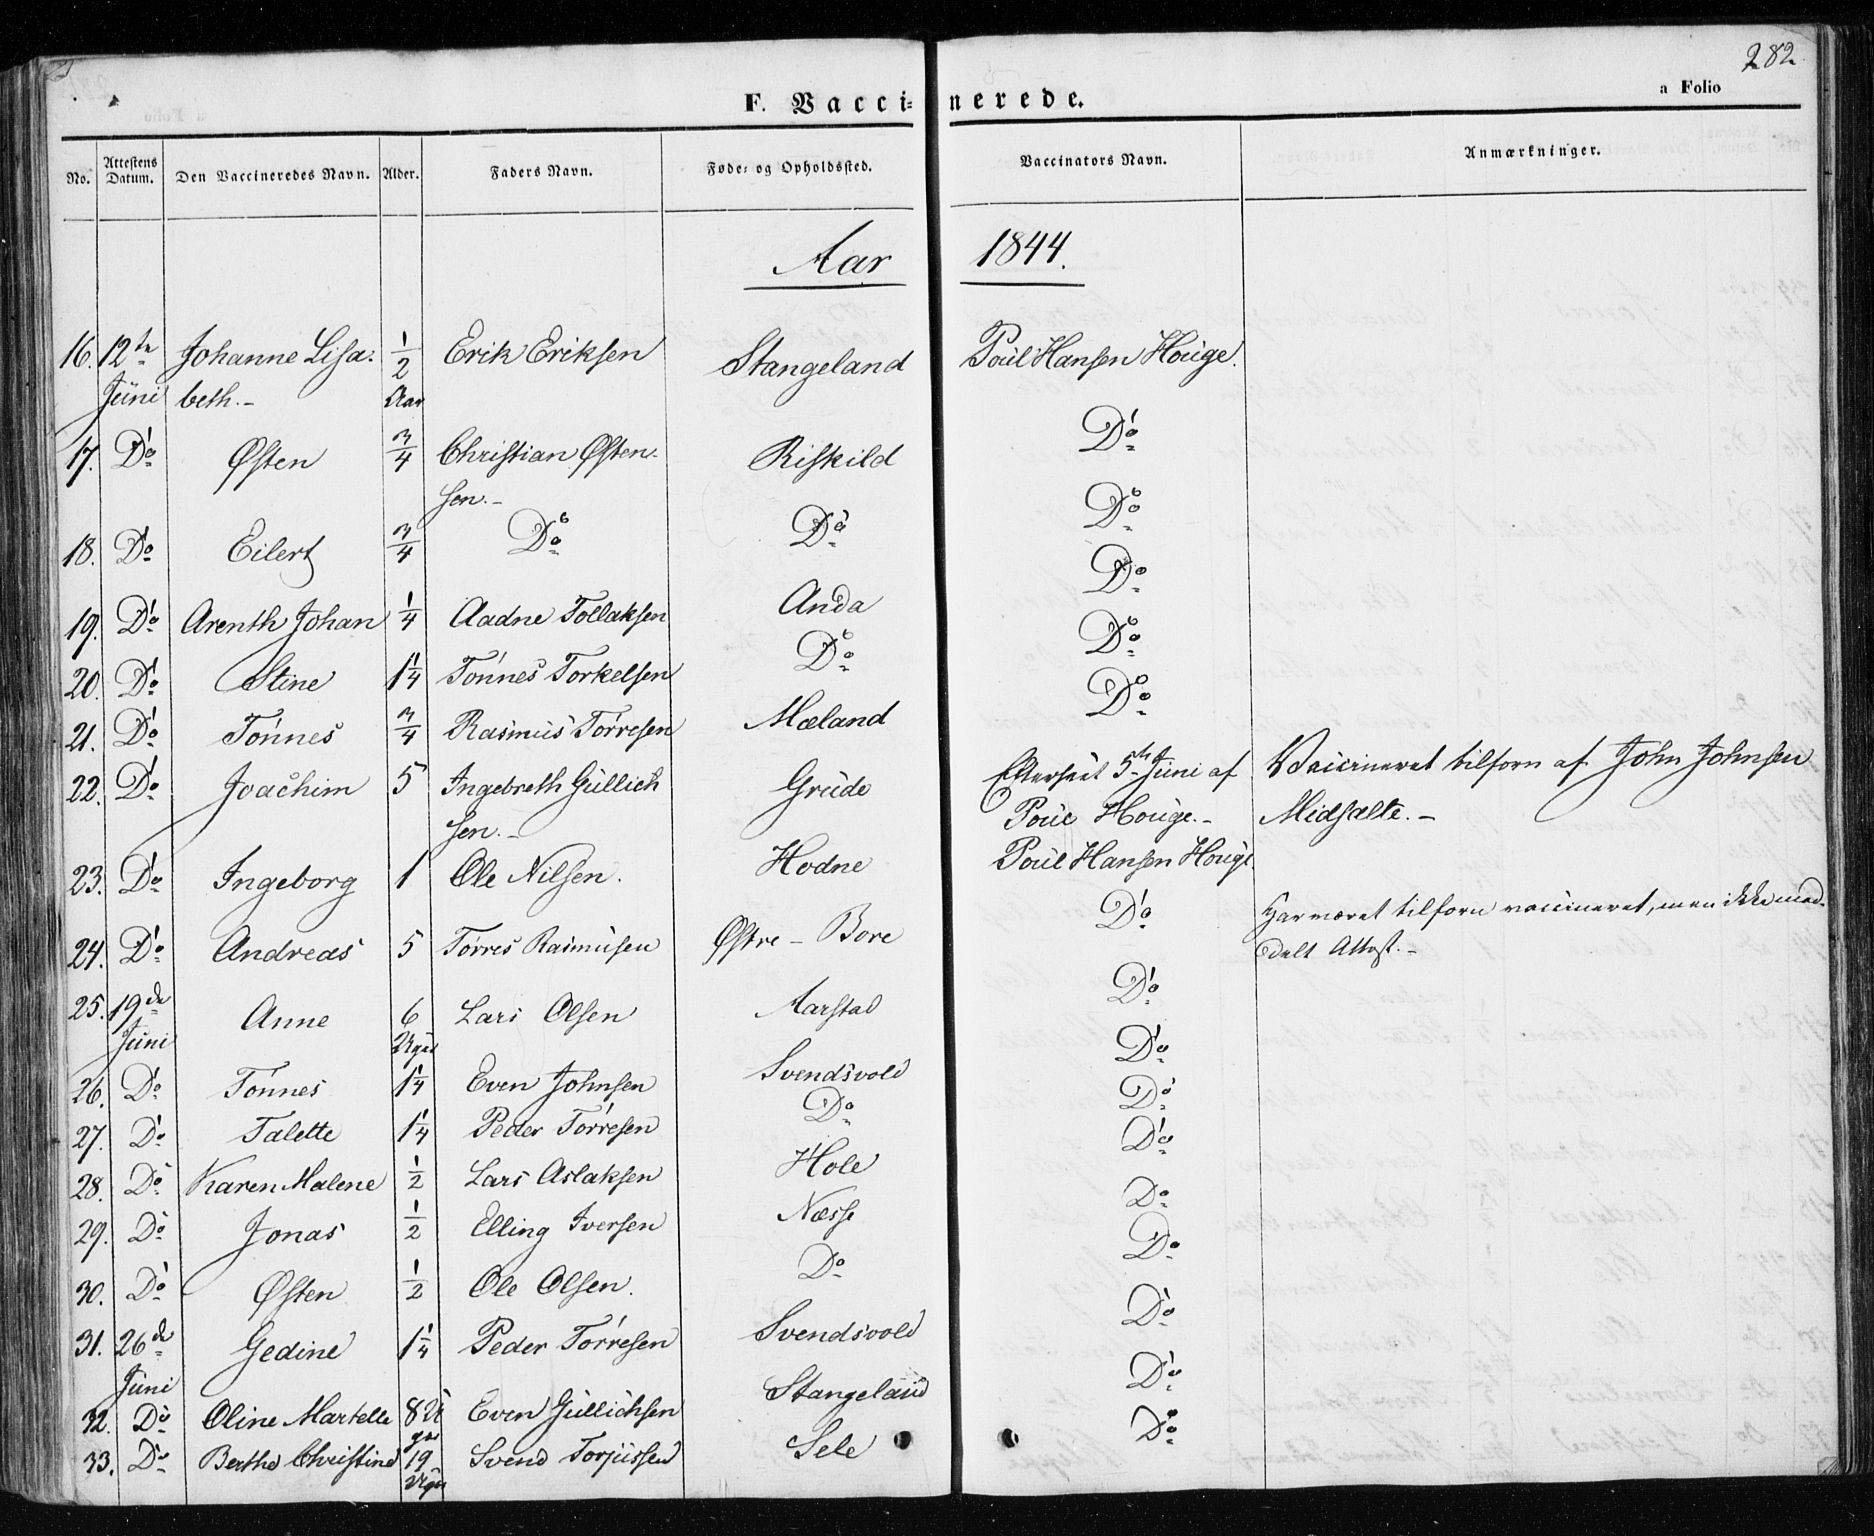 282.
F. Vaccinerede.
a Folio
No. Attestens Datum. Den Vaccineredes Navn. Alder. Faders Navn. Føde- og Opholdssted. Vaccinators Navn. Anmærkninger.
Aar 1844.
16. 12te Johanne Lisa- 1/2 Erik Eriksen Stangeland Poul Hansen Houge.
Juni beth.- Aar
17. Do Østen 3/4 Christian Østen- Riskild Do
sen.-
18. Do Eilert 3/4 Do Do Do
19. Do Arenth Johan 1/4 Aadne Tollaksen Anda Do
20. Do Stine 1 1/4 Tönnes Torkelsen Do Do
21. Do Tönnes 3/4 Rasmus Törresen Mæland Do
22. Do Joachim 5 Ingebreth Gullich Grude Efterseet 5te Juni af Vaccineret tilforn af John Johnsen
sen.- Poul Houge.- Midsælte.-
23. Do Ingeborg 1 Ole Nilsen. Hodne Poul Hansen Houge
24. Do Andreas 5 Törres Rasmusen Østre - Bore Do Har været tilforn vaccineret, men ikke med-
delt Attest.-
25. 19de Anne 6 Lars Olsen Aarstad Do
Juni Uger
26. Do Tönnes 1 1/4 Even Johnsen Svendsvold Do
27. Do Talette 1 1/4 Peder Törresen Do Do
28. Do Karen Malene 1/2 Lars Aslaksen Hole Do
29. Do Jonas 1/2 Elling Iversen Næsse Do
30. Do Østen 1/2 Ole Olsen. Do Do
31. 26de Gedine 1 1/4 Peder Törresen Svendsvold Do
Juni
32. Do Oline Martelle 8 U Even Gullichsen Stangeland Do
ger
33. Do Berthe Christine 19 Svend Torjussen Sele Do
Uger